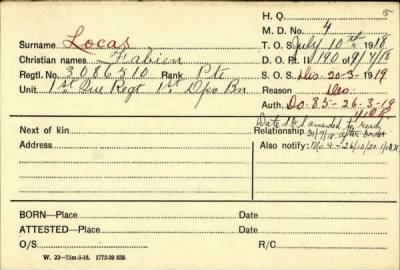 H. Q. 5
M. D. No. 4
Surname Locas T. O. S. July 10th 1918
Christian names Fabien D. O. Pt. II 190 of 9/7/18
Regtl. No. 3086510 Rank Pte S. O. S. Dis 20-3-1919
Unit 1st Que Regt 1st Dpo Bn Reason Des
Auth. Do. 85-26-3-19
Date S.O.S amended to read
Next of kin Relationship 30/9/18
Address Also notify: Mo. 4-26/10/20
BORN—Place Date
ATTESTED—Place Date
O/S R/C
W. 22—75m-5-18. 1772-39 839.